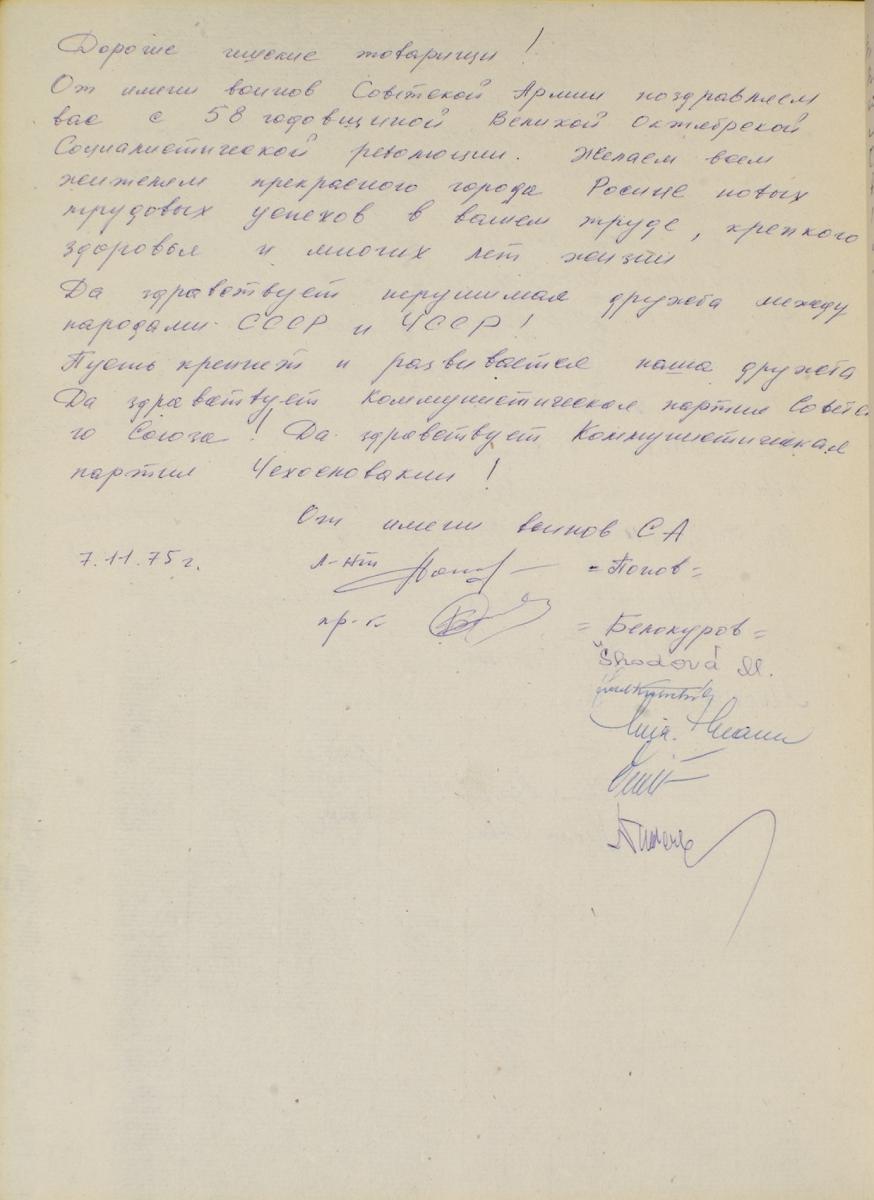 Дорогие чешские товарищи!
От имени воинов Советской Армии поздравляем
вас с 58 годовщиной Великой Октябрьской
Социалистической революции. Желаем всем
жителям прекрасного города Росице новых
трудовых успехов в вашем труде, крепкого
здоровья и многих лет жизни
Да здравствует нерушимая дружба между
народами СССР и ЧССР!
Пусть крепнет и развивается наша дружба
Да здравствует Коммунистическая партия Советс
го Союза! Да здравствует Коммунистическая
партия Чехословакии!
От имени воинов СА
7.11.75 г. л-нт = Попов =
пр-к = Белокуров =
Škodová M.